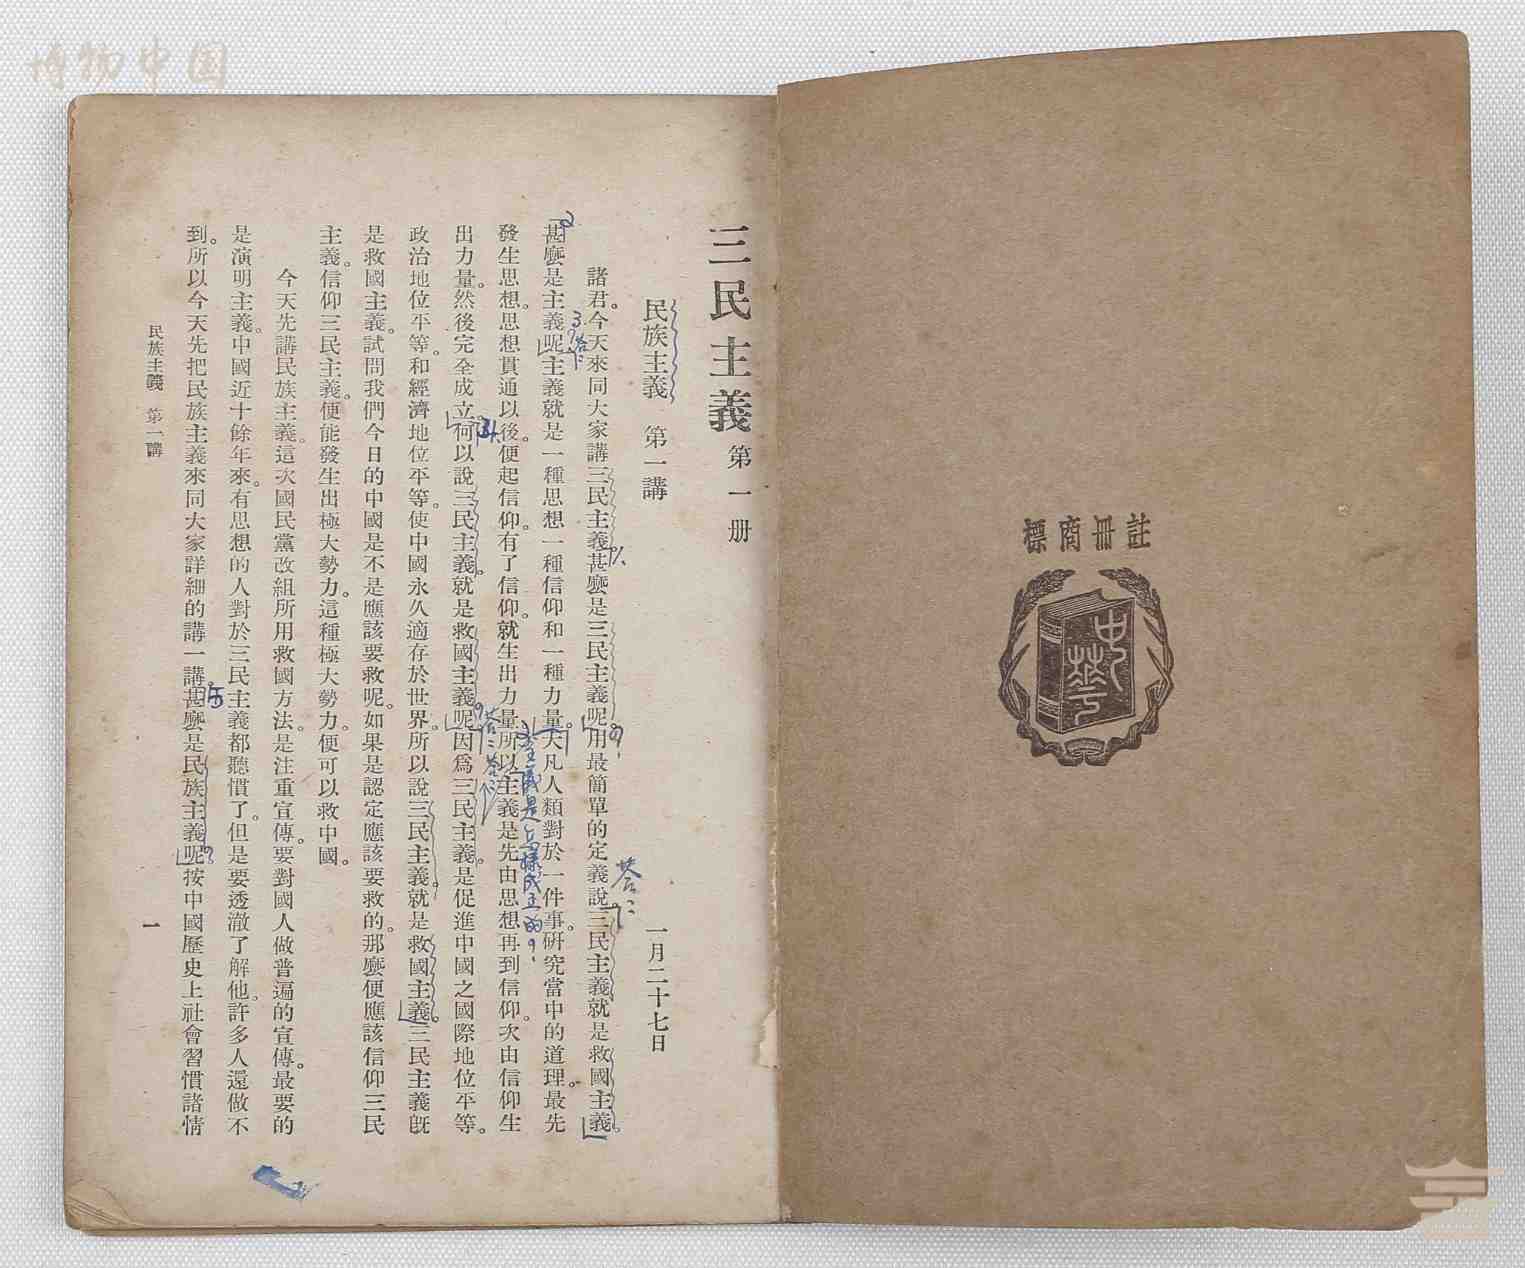 博物中国
標商冊註
中華
三民主義 第一册
民族主義 第一講 一月二十七日
諸君。今天來同大家講三民主義。甚麼是三民主義呢。用最簡單的定義說。三民主義就是救國主義。
甚麼是主義呢。主義就是一種思想一種信仰和一種力量。大凡人類對於一件事。研究當中的道理。最先
發生思想。思想貫通以後。便起信仰。有了信仰。就生出力量。所以主義是先由思想再到信仰。次由信仰生
出力量。然後完全成立。何以說三民主義。就是救國主義呢。因爲三民主義。是促進中國之國際地位平等。
政治地位平等。和經濟地位平等。使中國永久適存於世界。所以說三民主義。就是救國主義。三民主義旣
是救國主義。試問我們今日的中國是不是應該要救呢。如果是認定應該要救的。那麼便應該信仰三民
主義。信仰三民主義。便能發生出極大勢力。這種極大勢力。便可以救中國。
今天先講民族主義。這次國民黨改組所用救國方法。是注重宣傳。要對國人做普遍的宣傳。最要的
是演明主義。中國近十餘年來。有思想的人對於三民主義都聽慣了。但是要透澈了解他。許多人還做不
到。所以今天先把民族主義來同大家詳細的講一講。甚麼是民族主義呢。按中國歷史上社會習慣諸情
民族主義 第一講 一
2
3
答:
答:
主義是怎樣民主的?
5